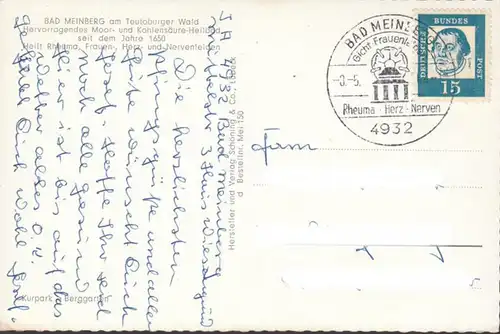 BAD MEINBERG am Teutoburger Wald
Hervorragendes Moor- und Kohlensäure-Heilbad
seit dem Jahre 1650
Heilt Rheuma, Frauen-, Herz- und Nervenleiden
4932 Bad Meinberg
Haus Wiesengrund
Die herzlichsten
Pfingstgrüße und alles
Gute wünscht Euch
Josef. Hoffe Ihr seid
noch alle gesund
hier ist bis auf das
Wetter alles O.K.
Kurpark · Berggarten
Hersteller und Verlag Schöning & Co., Lübeck
Bestellnr. Mei 150
BAD MEINBERG
Gicht Frauenl
Rheuma · Herz · Nerven
4932
DEUTSCHE
BUNDES
POST
15